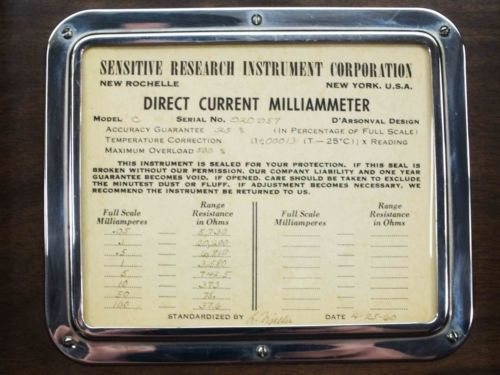 SENSITIVE RESEARCH INSTRUMENT CORPORATION
NEW ROCHELLE NEW YORK, U.S.A.
DIRECT CURRENT MILLIAMMETER
MODEL C SERIAL NO. D'ARSONVAL DESIGN
ACCURACY GUARANTEE % (IN PERCENTAGE OF FULL SCALE)
TEMPERATURE CORRECTION (T — 25°C)] X READING
MAXIMUM OVERLOAD 500 %
THIS INSTRUMENT IS SEALED FOR YOUR PROTECTION. IF THIS SEAL IS
BROKEN WITHOUT OUR PERMISSION, OUR COMPANY LIABILITY AND ONE YEAR
GUARANTEE BECOMES VOID. IF OPENED, CARE SHOULD BE TAKEN TO EXCLUDE
THE MINUTEST DUST OR FLUFF. IF ADJUSTMENT BECOMES NECESSARY, WE
RECOMMEND THE INSTRUMENT BE RETURNED TO US.
Full Scale Milliamperes Range Resistance in Ohms Full Scale Milliamperes Range Resistance in Ohms
.05 5,730
.1 20,200
.5
1 3,580
5 742.5
10 373
50 75.
100 37.6
STANDARDIZED BY DATE 4-25-60